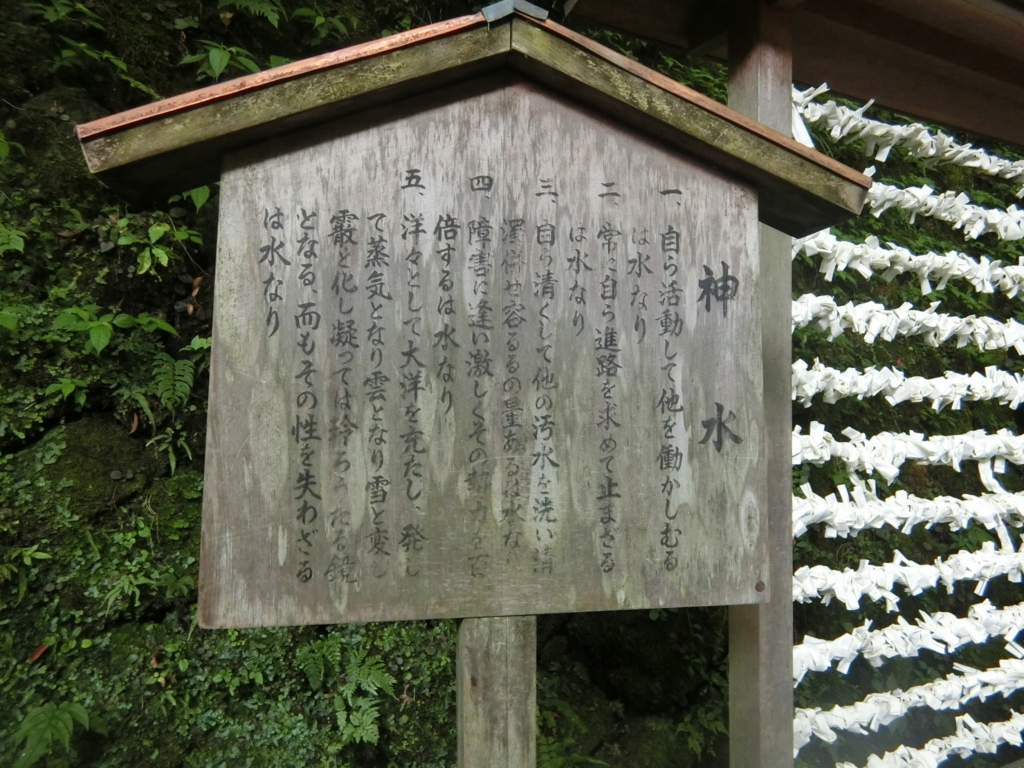 神水
一、自ら活動して他を働かしむる
は水なり
二、常に自ら進路を求めて止まざる
は水なり
三、自ら清くして他の汚水を洗い清
濁併せ容るるの量あるは水な
四、障害に逢い激しくその勢力を百
倍するは水なり
五、洋々として大洋を充たし、発し
て蒸気となり雲となり雪と変し
霰と化し凝っては玲ろうたる鏡
となる、而もその性を失わざる
は水なり